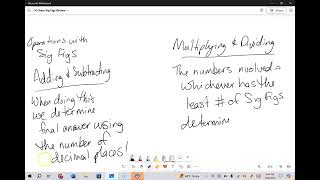 Operations with
Sig Figs
Adding & Subtracting
When doing this
we determine
final answer using
the number of
decimal places!
Multiplying & Dividing
The numbers involved -
whichever has the
least # of Sig Figs
determine